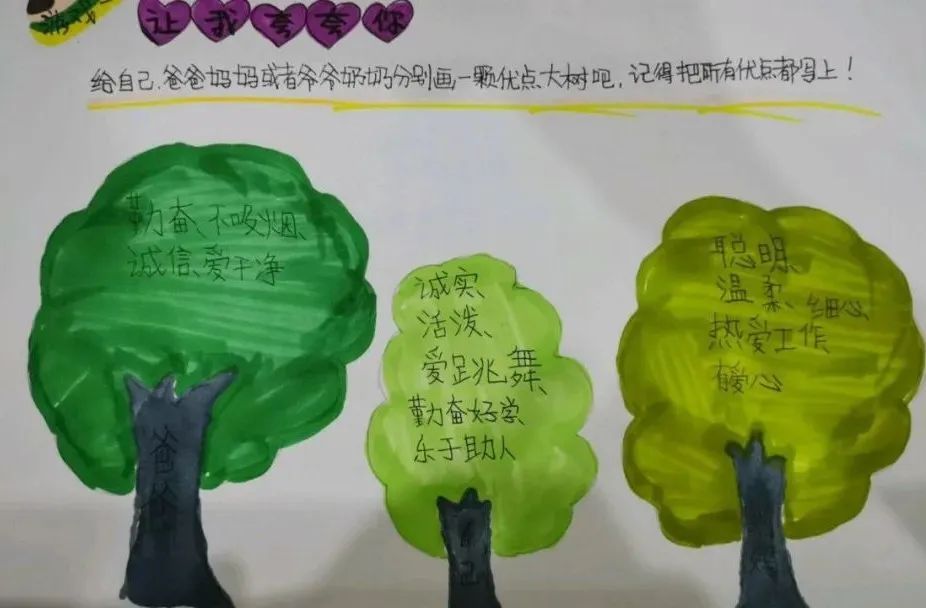 让我夸夸你
给自己、爸爸妈妈或者爷爷奶奶分别画一颗优点大树吧，记得把所有优点都写上！
勤奋、不吸烟、
诚信、爱干净
爸爸
诚实、
活泼、
爱跳舞、
勤奋好学、
乐于助人
自己
聪明、
温柔、细心、
热爱工作
有爱心